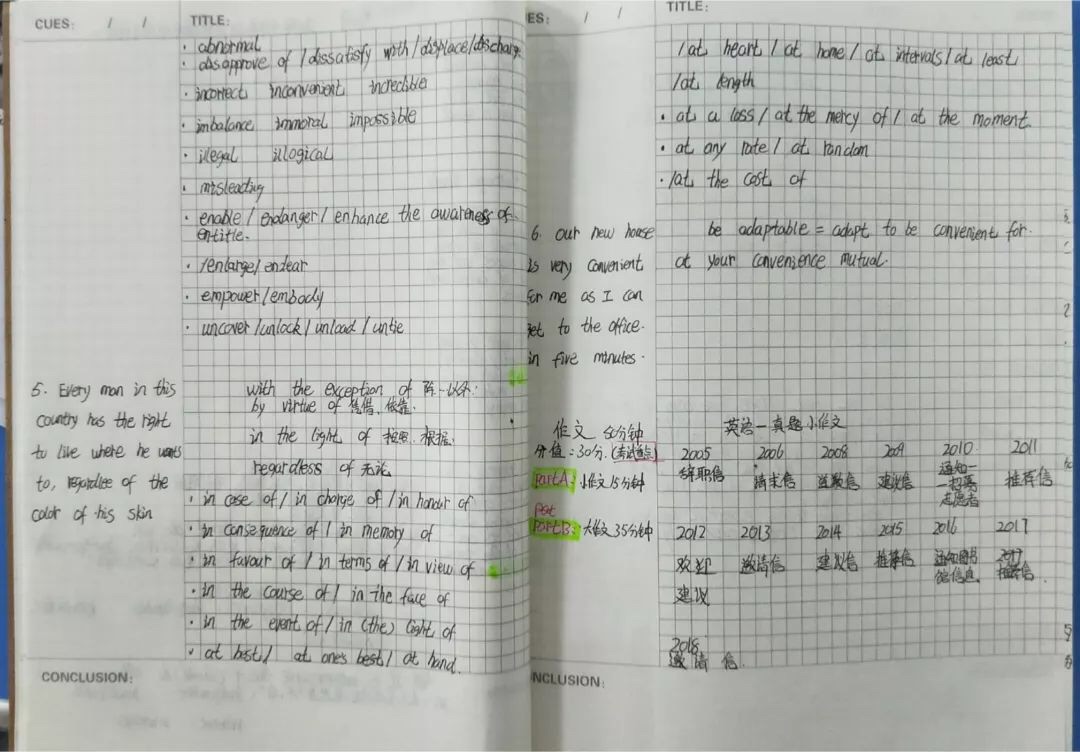 CUES: / /
TITLE:
· abnormal
· disapprove of / dissatisfy with / displace / discharge
· incorrect inconvenient incredible
· imbalance immoral impossible
· illegal illogical
· misleading
· enable / endanger / enhance the awareness of
entitle.
· /enlarge/ endear
· empower / embody
· uncover / unlock / unload / untie
5. Every man in this
country has the right
to live where he wants
to, regardlee of the
color of his skin
with the exception of 除…以外.
by virtue of 凭借、依靠.
in the light of 按照、根据.
regardless of 无论
· in case of / in charge of / in honour of
· in consequence of / in memory of
· in favour of / in terms of / in view of
· in the course of / in the face of
· in the event of / in (the) light of
· at best / at one's best / at hand.
CONCLUSION:
ES: / /
TITLE:
/at heart / at home / at intervals / at least
/at length
· at a loss / at the mercy of / at the moment.
· at any rate / at random
· /at the cost of
6. our new house
is very convenient
for me as I can
get to the office.
in five minutes.
be adaptable = adapt to be convenient for.
at your convenience mutual.
作文 50分钟
分值:30分.(考试重点)
PartA: 小作文15分钟
PartB: 大作文35分钟
英语一真题小作文
2005 2006 2008 2009 2010 2011
辞职信 请求信 道歉信 建议信 通知— 推荐信
招募
志愿者
2012 2013 2014 2015 2016 2017
欢迎 邀请信 建议信 推荐信 通知图书 推荐信.
建议 馆信息
2018
邀请信.
NCLUSION: